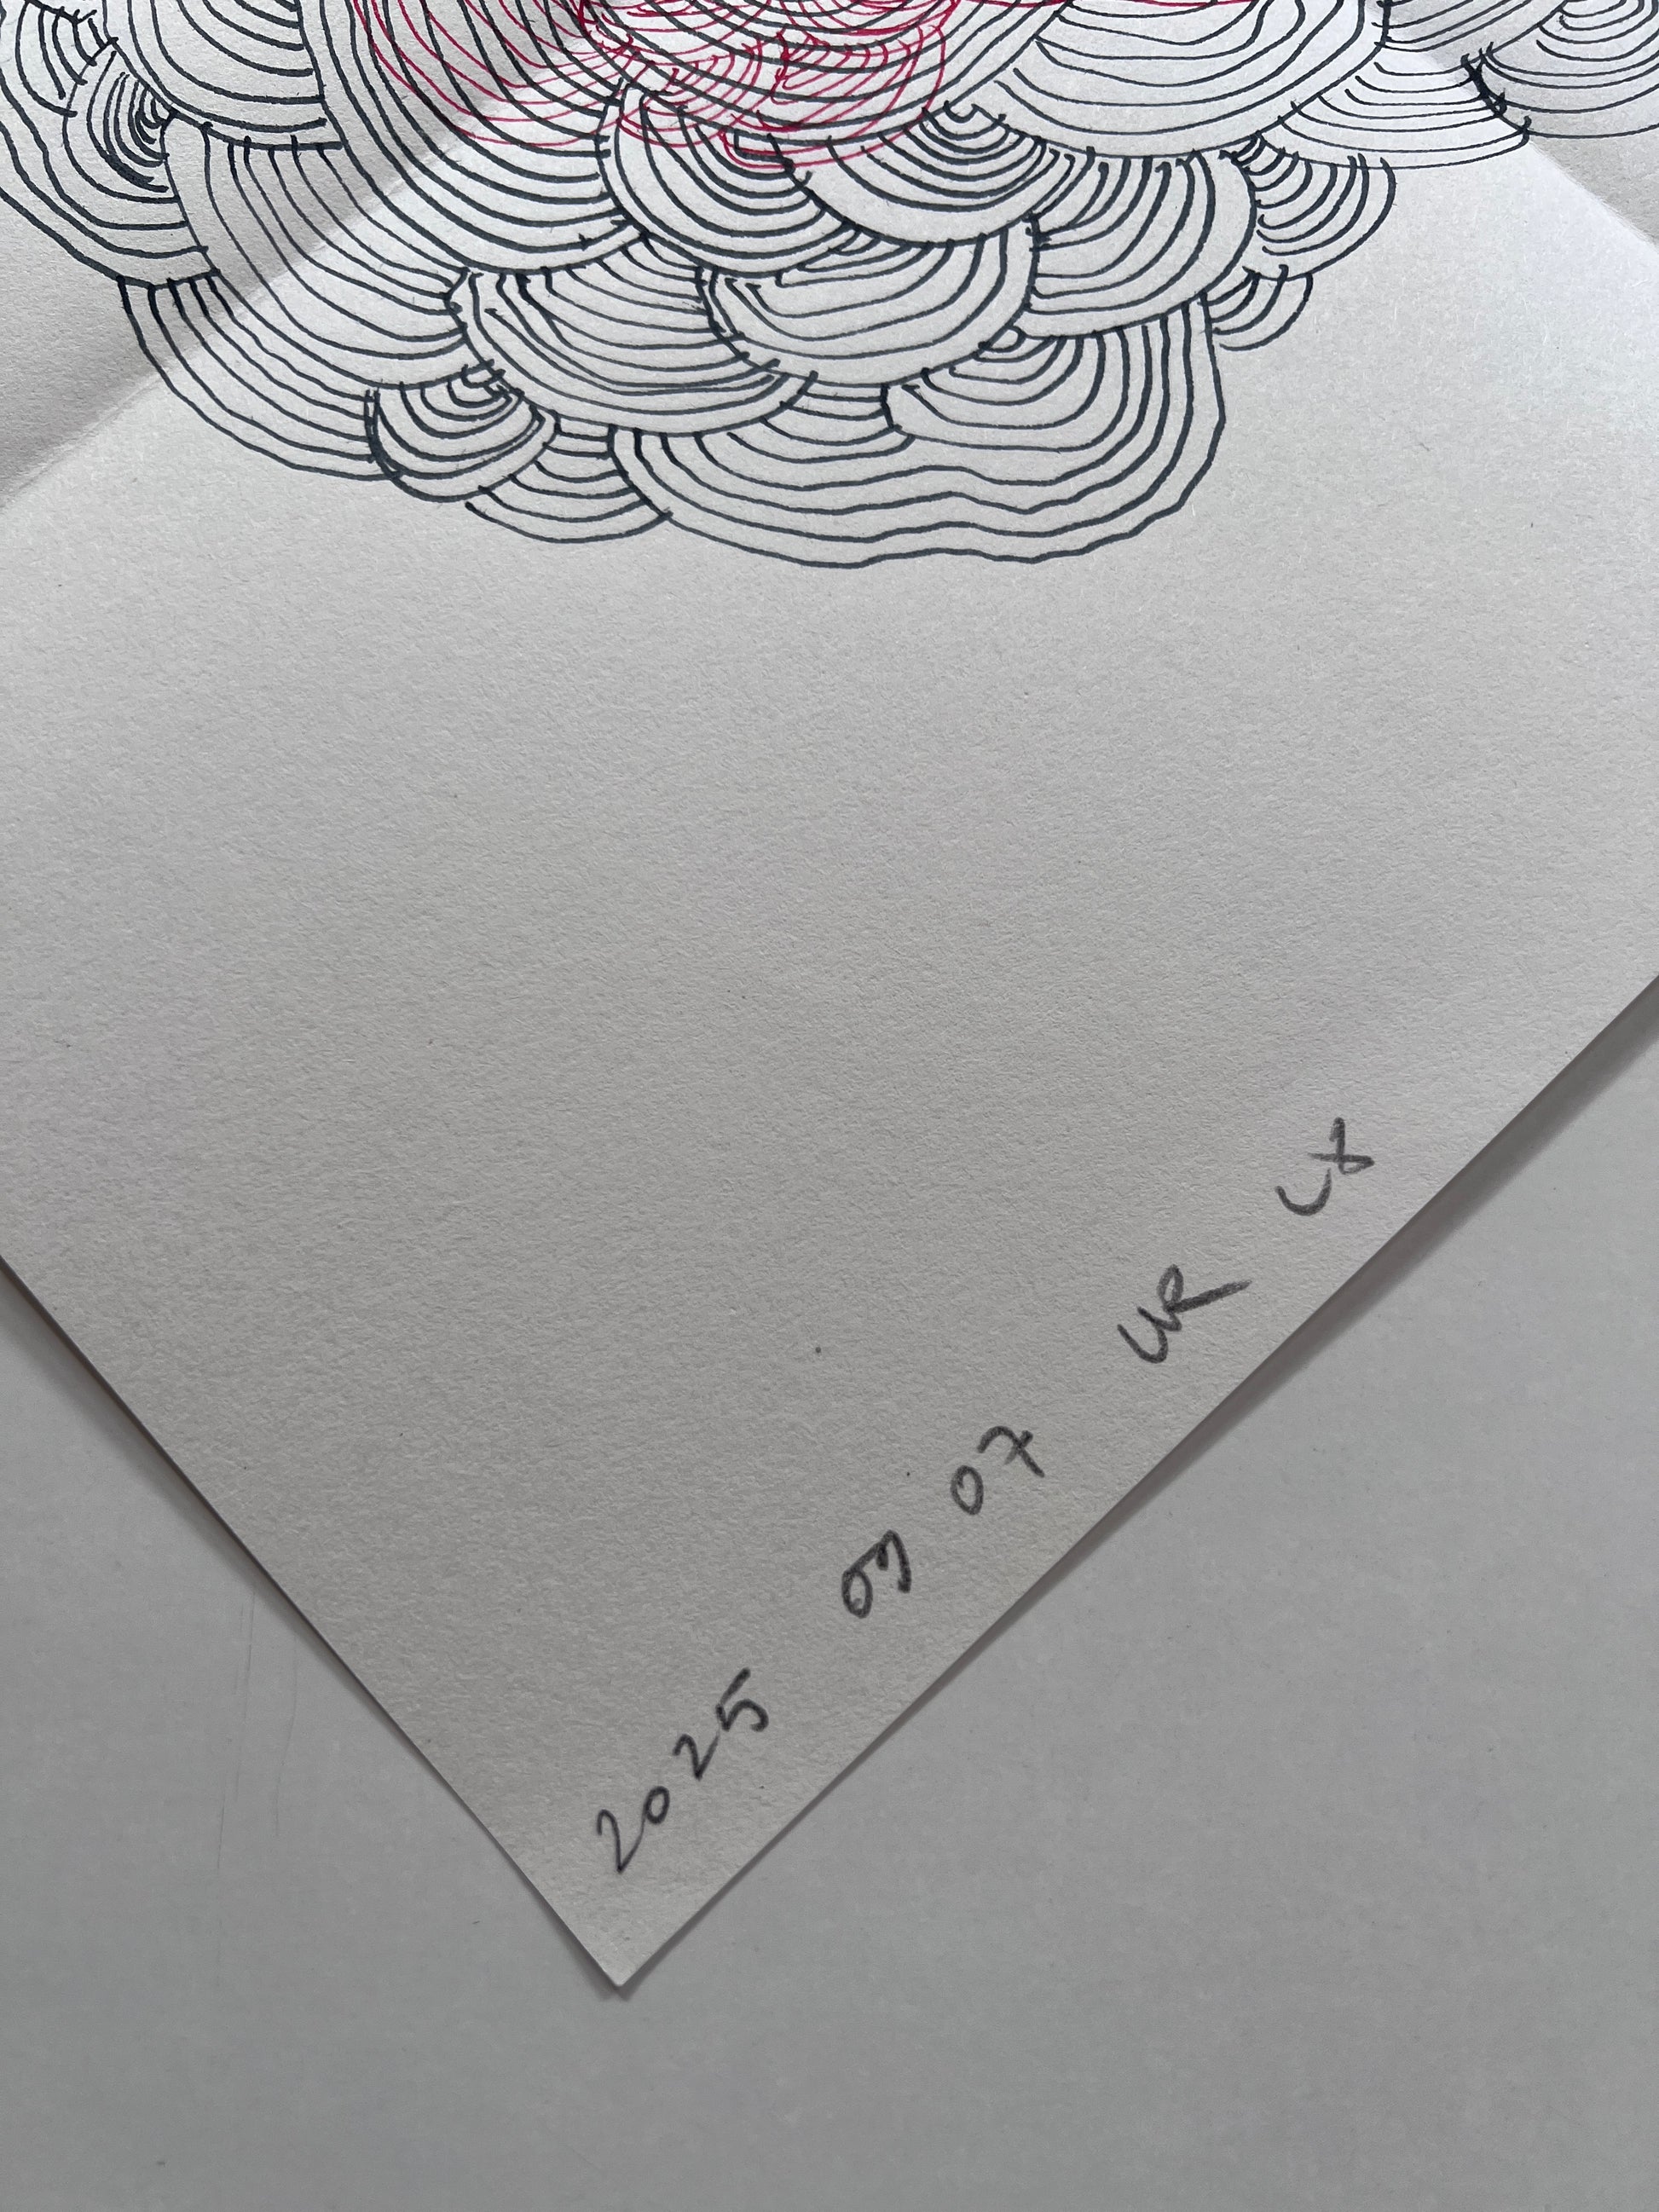 2025 09 07 UR LX